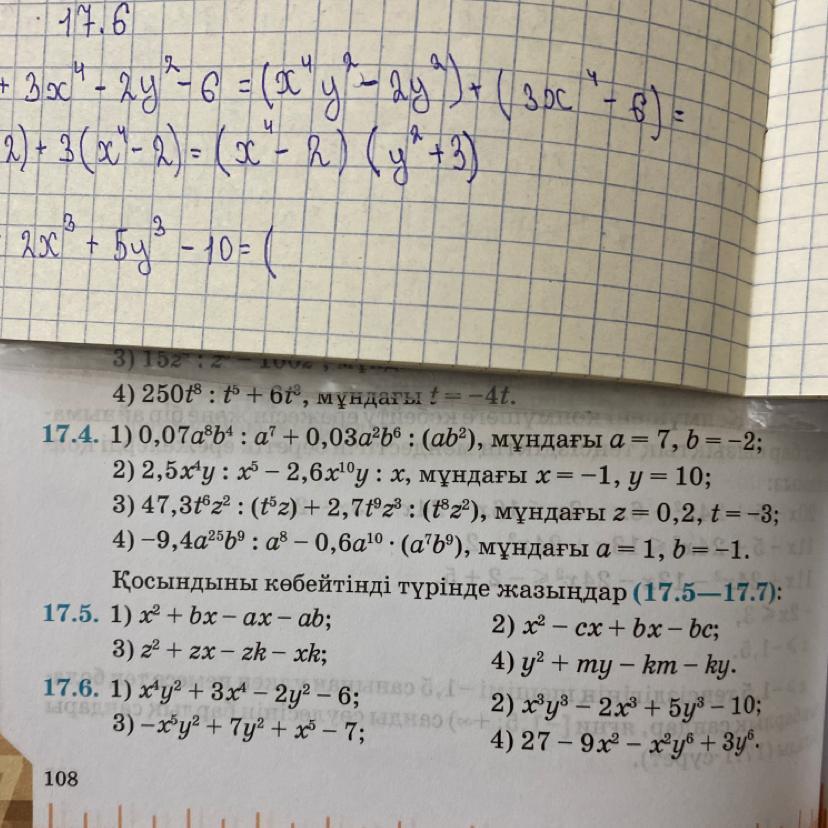 17.6
+ 3x⁴ - 2y² - 6 = (x⁴y² - 2y²) + (3x⁴ - 6) =
2) + 3(x⁴ - 2) = (x⁴ - 2) (y² + 3)
2x³ + 5y³ - 10 = (
4) 250t⁸ : t⁵ + 6t³, мұндағы t = –4t.
17.4. 1) 0,07a⁸b⁴ : a⁷ + 0,03a²b⁶ : (ab²), мұндағы a = 7, b = –2;
2) 2,5x⁴y : x⁵ – 2,6x¹⁰y : x, мұндағы x = –1, y = 10;
3) 47,3t⁶z² : (t⁵z) + 2,7t⁹z³ : (t⁸z²), мұндағы z = 0,2, t = –3;
4) –9,4a²⁵b⁹ : a⁸ – 0,6a¹⁰ · (a⁷b⁹), мұндағы a = 1, b = –1.
Қосындыны көбейтінді түрінде жазыңдар (17.5—17.7):
17.5. 1) x² + bx – ax – ab; 2) x² – cx + bx – bc;
3) z² + zx – zk – xk; 4) y² + my – km – ky.
17.6. 1) x⁴y² + 3x⁴ – 2y² – 6; 2) x³y³ – 2x³ + 5y³ – 10;
3) –x⁵y² + 7y² + x⁵ – 7; 4) 27 – 9x² – x²y⁶ + 3y⁶.
108